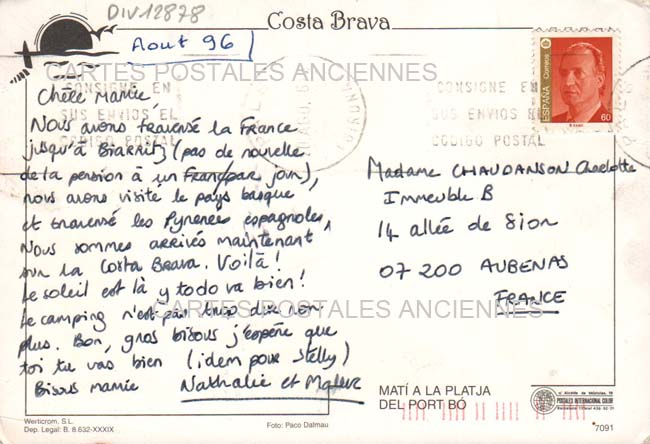 DIV12878
Costa Brava
Aout 96
CARTES POSTALES ANCIENNES
CONSIGNE EN
SUS ENVIOS EL
CODIGO POSTAL
CONSIGNE EN
SUS ENVIOS EL
CODIGO POSTAL
ESPAÑA
Correos
60
Chère Mamie,
Nous avons traversé la France
jusqu'à BIARRITZ (pas de nouvelle
de la pension à un Franc par jour),
nous avons visité le pays basque
et traversé les Pyrenées espagnoles,
Nous sommes arrivés maintenant
sur la Costa BRAVA. Voilà!
Le soleil est là y todo va bien!
Le camping n'est pas trop dix non
plus. Bon, gros bisous j'espère que
toi tu vas bien (idem pour Stelly)
Bisous mamie Nathalie et
Madame CHAUDANSON Charlotte
Immeuble B
14 allée de Sion
07200 AUBENAS
FRANCE
CARTES POSTALES ANCIENNES
MATÍ A LA PLATJA
DEL PORT BÓ
Werticrom, S.L.
Dep. Legal: B. 8.632-XXXIX
Foto: Paco Dalmau
POSTALES INTERNACIONAL COLOR
7091